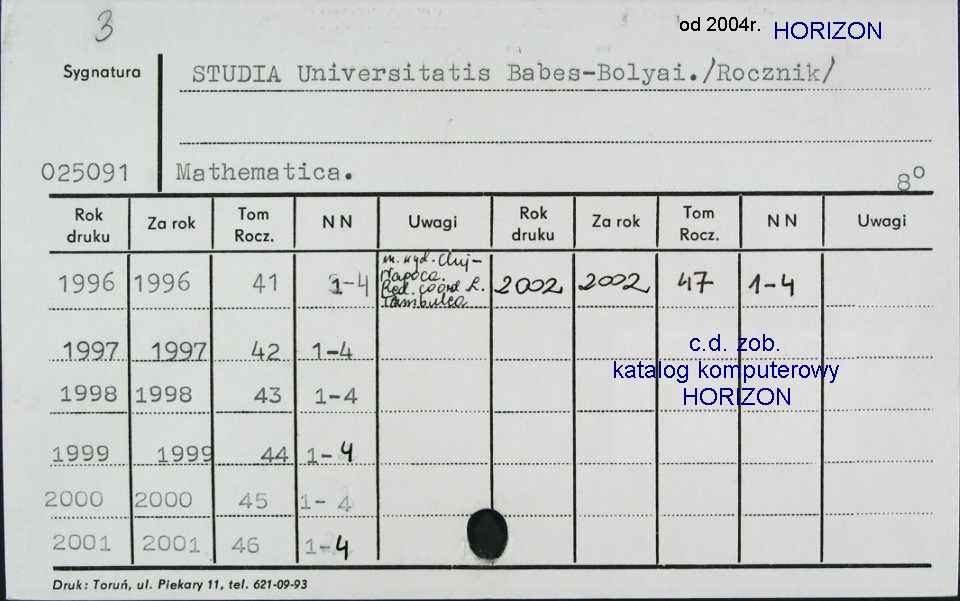 3
od 2004r. HORIZON
Sygnatura
STUDIA Universitatis Babes-Bolyai./Rocznik/
025091
Mathematica.
8°
Rok druku Za rok Tom Rocz. N N Uwagi Rok druku Za rok Tom Rocz. N N Uwagi
1996 1996 41 1-4 m. wyd. Cluj-
Napoca.
Red. coord L.
2002 2002 47 1-4
1997 1997 42 1-4
c.d. zob.
katalog komputerowy
HORIZON
1998 1998 43 1-4
1999 1999 44 1-4
2000 2000 45 1-4
2001 2001 46 1-4
Druk: Toruń, ul. Piekary 11, tel. 621-09-93